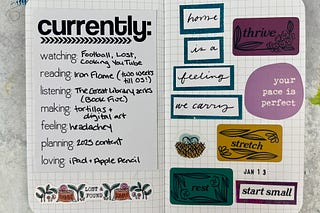 currently:
watching: Football, Lost,
Cooking YouTube
reading: Iron Flame (two weeks
til OS!)
listening: The Great Library series
(Book Five)
making: tortillas +
digital art
feeling: headachey
planning: 2025 content
loving: iPad + Apple Pencil
LOST
FOUND
home
is a
feeling
we carry
thrive
your
pace is
perfect
stretch
JAN 13
rest
start small